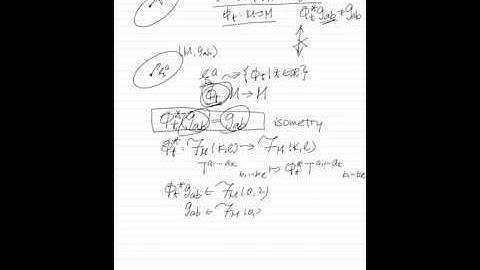 ϕ_t : M → M   ϕ_t^* g_ab ≠ g_ab
(M, g_ab)
ξ^a ⇝ {ϕ_t | t ∈ ℝ}
ϕ_t : M → M
ϕ_t^* g_ab = g_ab   isometry
ϕ_t^* : 𝒯_M(k, l) → 𝒯_M(k, l)
T^{a_1⋯a_k}_{b_1⋯b_l} ↦ ϕ_t^* T^{a_1⋯a_k}_{b_1⋯b_l}
ϕ_t^* g_ab ∈ 𝒯_M(0, 2)
g_ab ∈ 𝒯_M(0,